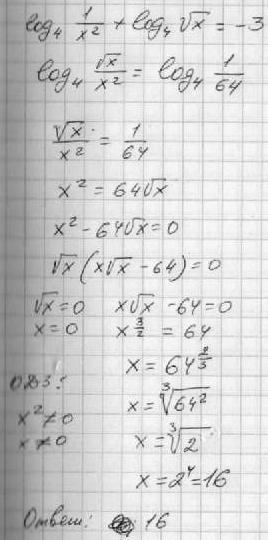 log₄ 1/x² + log₄ √x = -3
log₄ √x/x² = log₄ 1/64
√x/x² = 1/64
x² = 64√x
x² - 64√x = 0
√x (x√x - 64) = 0
√x = 0 x√x - 64 = 0
x = 0 x^(3/2) = 64
x = 64^(2/3)
ОДЗ:
x² ≠ 0 x = ∛(64²)
x ≠ 0 x = ∛2
x = 2⁴ = 16
Ответ: 16